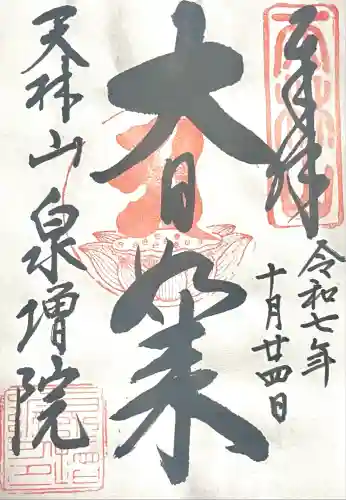 奉拝
令和七年
十月廿四日
大日如来
天林山 泉増院